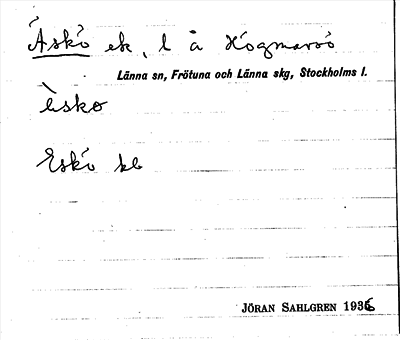 Äskö ek, l å Högmarsö
Länna sn, Frötuna och Länna skg, Stockholms l.
èskɵ
Eskö kb
JÖRAN SAHLGREN 1936